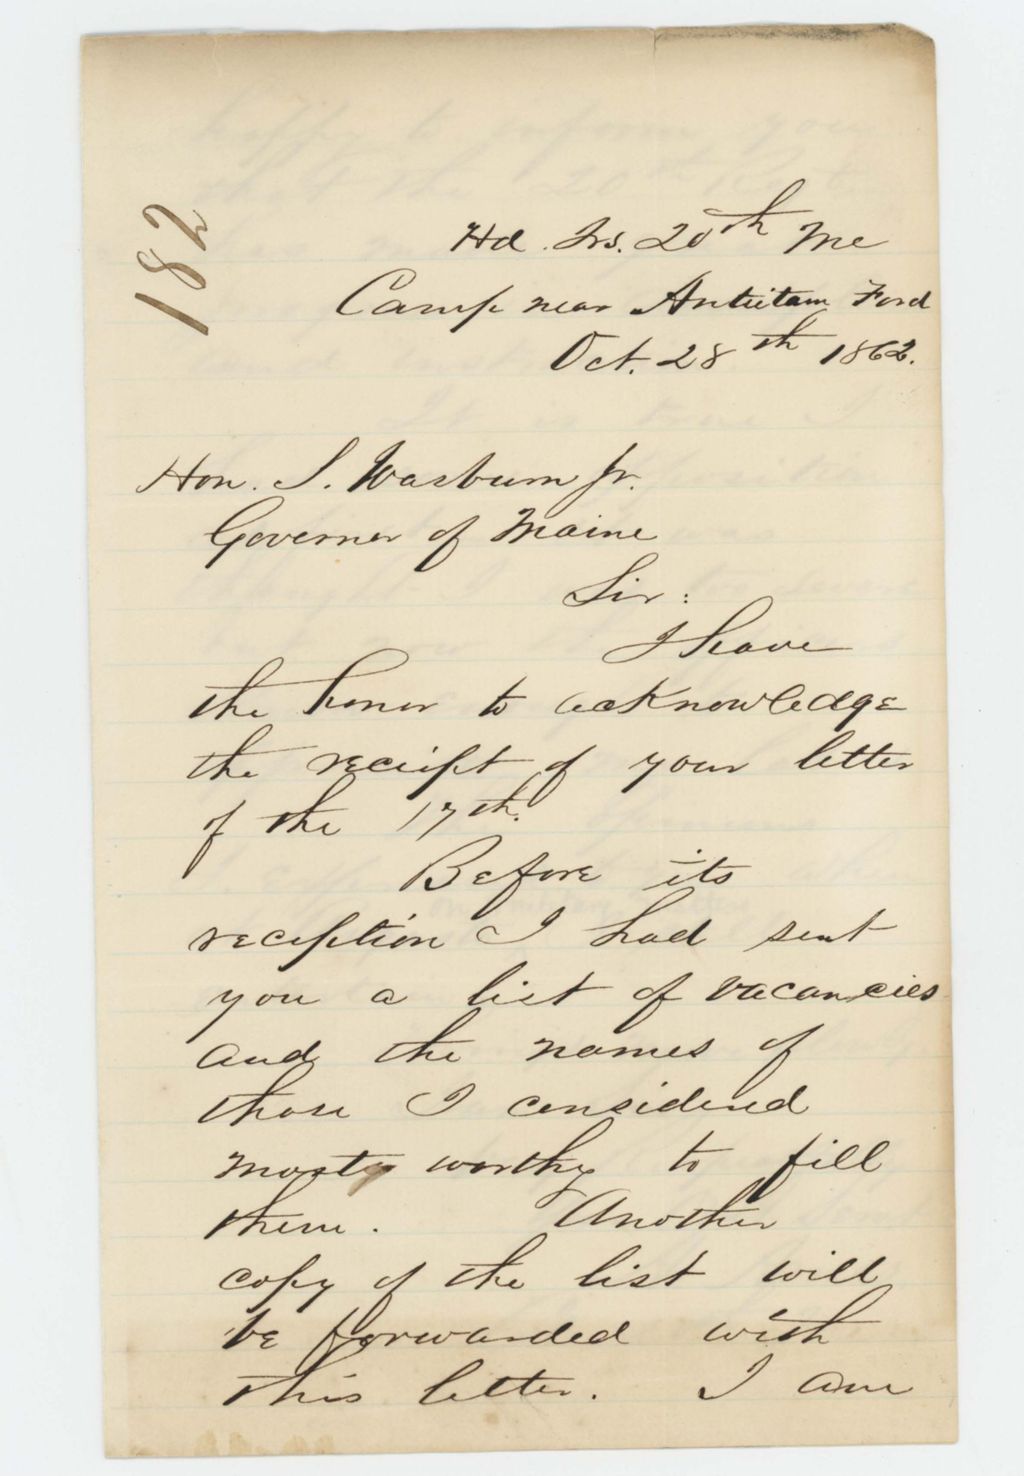 182
Hd. Qrs. 20th Me
Camp near Antietam Ford
Oct. 28th 1862.
Hon. I. Wasburn Jr.
Governor of Maine
Sir:
I have
the honor to acknowledge
the receipt of your letter
of the 17th.
Before its
reception I had sent
you a list of vacancies
and the names of
those I considered
most worthy to fill
them. Another
copy of the list will
be forwarded with
this letter. I am